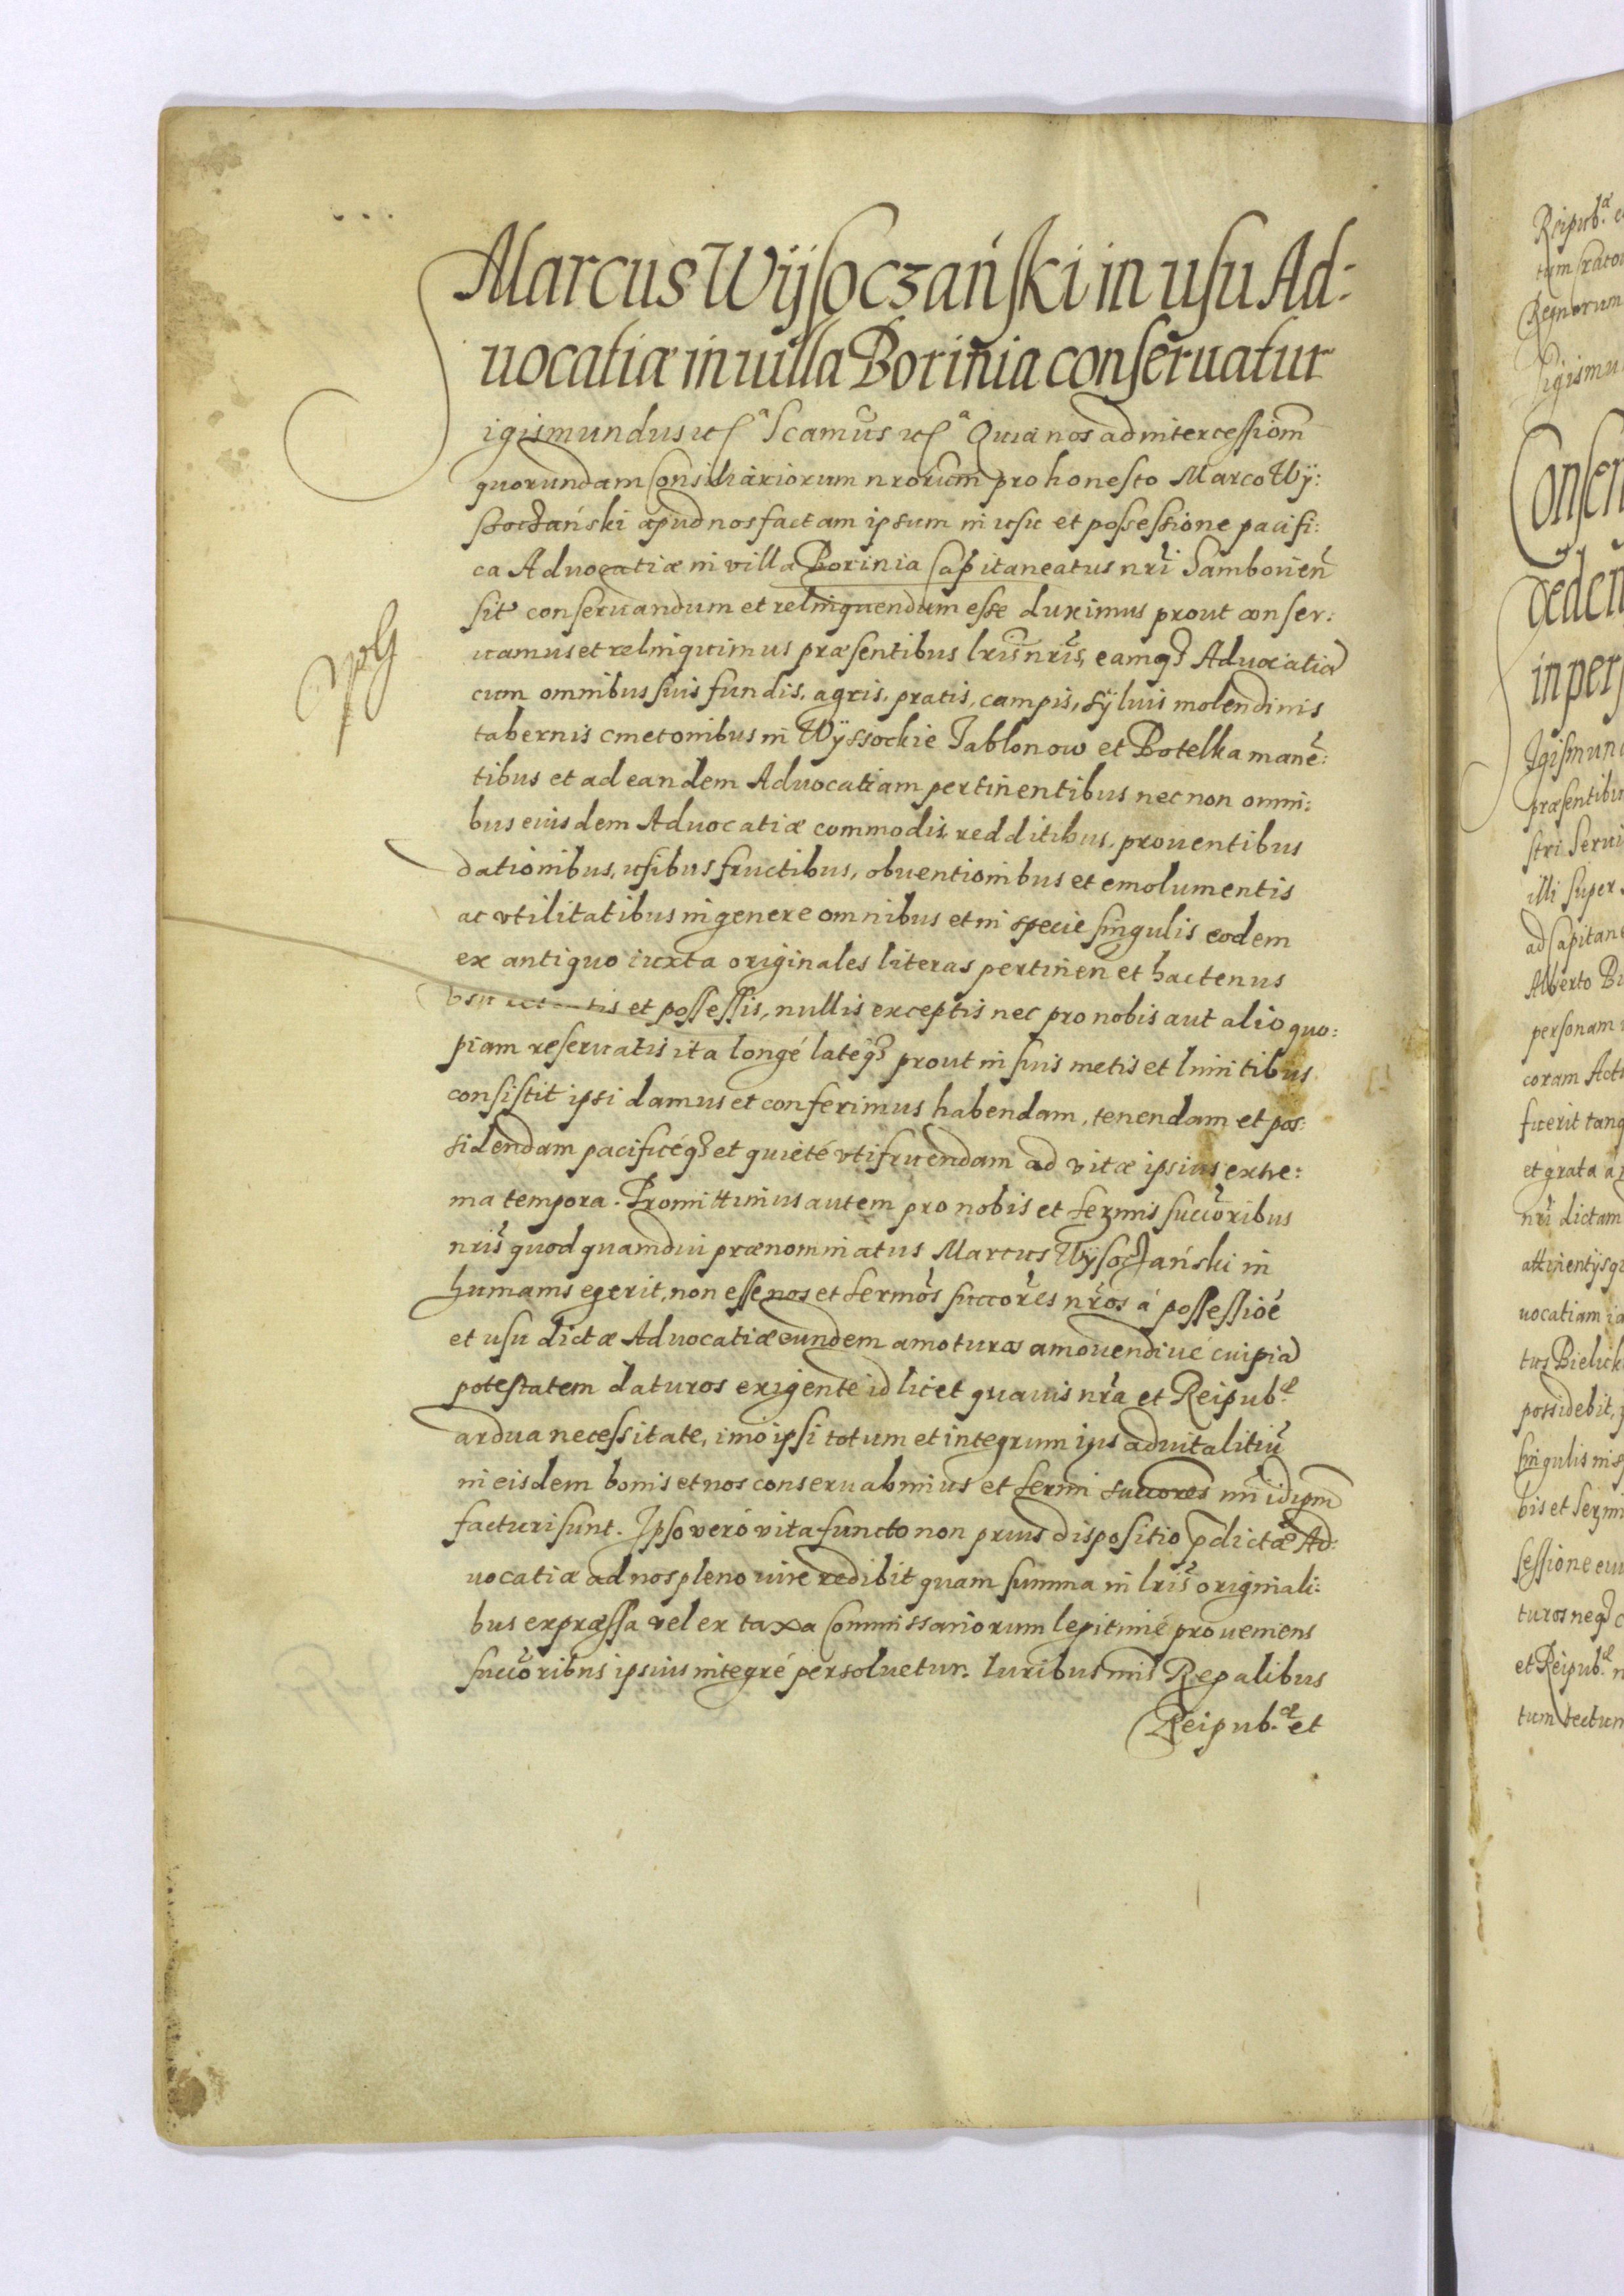 Marcus Wÿsoczański in usu Ad-
uocatiæ in uilla Borinia conseruatur
Sigismundus etc. Scamus etc. Quia nos ad intercessionem
quorundam Consiliariorum nrorum pro honesto Marco Wÿ:
soczański apud nos factam ipsum in usu et possessione pacifi:
ca Aduocatiæ in villa Borinia Capitaneatus nri Samborien
sis conseruandum et relinquendum esse duximus prout conser:
uamus et relinquimus præsentibus lris nris, eamq3 Aduocatia
cum omnibus suis fundis, agris, pratis, campis, sÿluis molendinis
tabernis cmetonibus in Wÿssockie Jablonow et Botelka mane:
tibus et ad eandem Aduocatiam pertinentibus nec non omni:
bus eiusdem Aduocatiæ commodis redditibus, prouentibus
dationibus, usibus fructibus, obuentionibus et emolumentis
ac vtilitatibus in genere omnibus et in specie singulis eodem
ex antiquo iuxta originales literas pertinen et hactenus
vsu et possessis, nullis exceptis nec pro nobis aut alio quo:
piam reseruatis ita longé lateq3 prout in suis metis et limitibus
consistit ipsi damus et conferimus habendam, tenendam et pos:
sidendam pacificéq3 et quieté vtifruendam ad vitæ ipsius extre:
ma tempora. Promittimus autem pro nobis et Sermis succoribus
nris quod quamdiu prænominatus Marcus Wÿsoczański in
humanis egerit, non esse nos et Sermos succores nros á possessioe
et usu dictæ Aduocatiæ eundem amoturos amouendiue cuipia
potestatem daturos exigente id licet quauis nra et Reipub.æ
ardua necessitate, imo ipsi totum et integrum ius aduitalitiu
in eisdem bonis et nos conseruabimus et Sermi succores nri idipm
facturi sunt. Ipso veró vita functo non prius dispositio pdictæ Ad:
uocatiæ ad nos pleno iure redibit quam summa in lris originali:
bus expræssa vel ex taxa Commissariorum legitimé proueniens
succoribus ipsius integré persoluetur. Iuribus nris Regalibus
Reipub.æ et
Reipub.æ
Regnorum
Conser
cedem
in per
Igismund
præsentibus
stri Serui
illi super
ad Capitane
Alberto
personam
coram Act
fuerit tanq
et grata
nri dictam
attinentÿsq
uocatiam
tus Bielick
possidebit,
singulis in s
bis et Sermi
sessione eu
turos neq3
et Reipub.æ